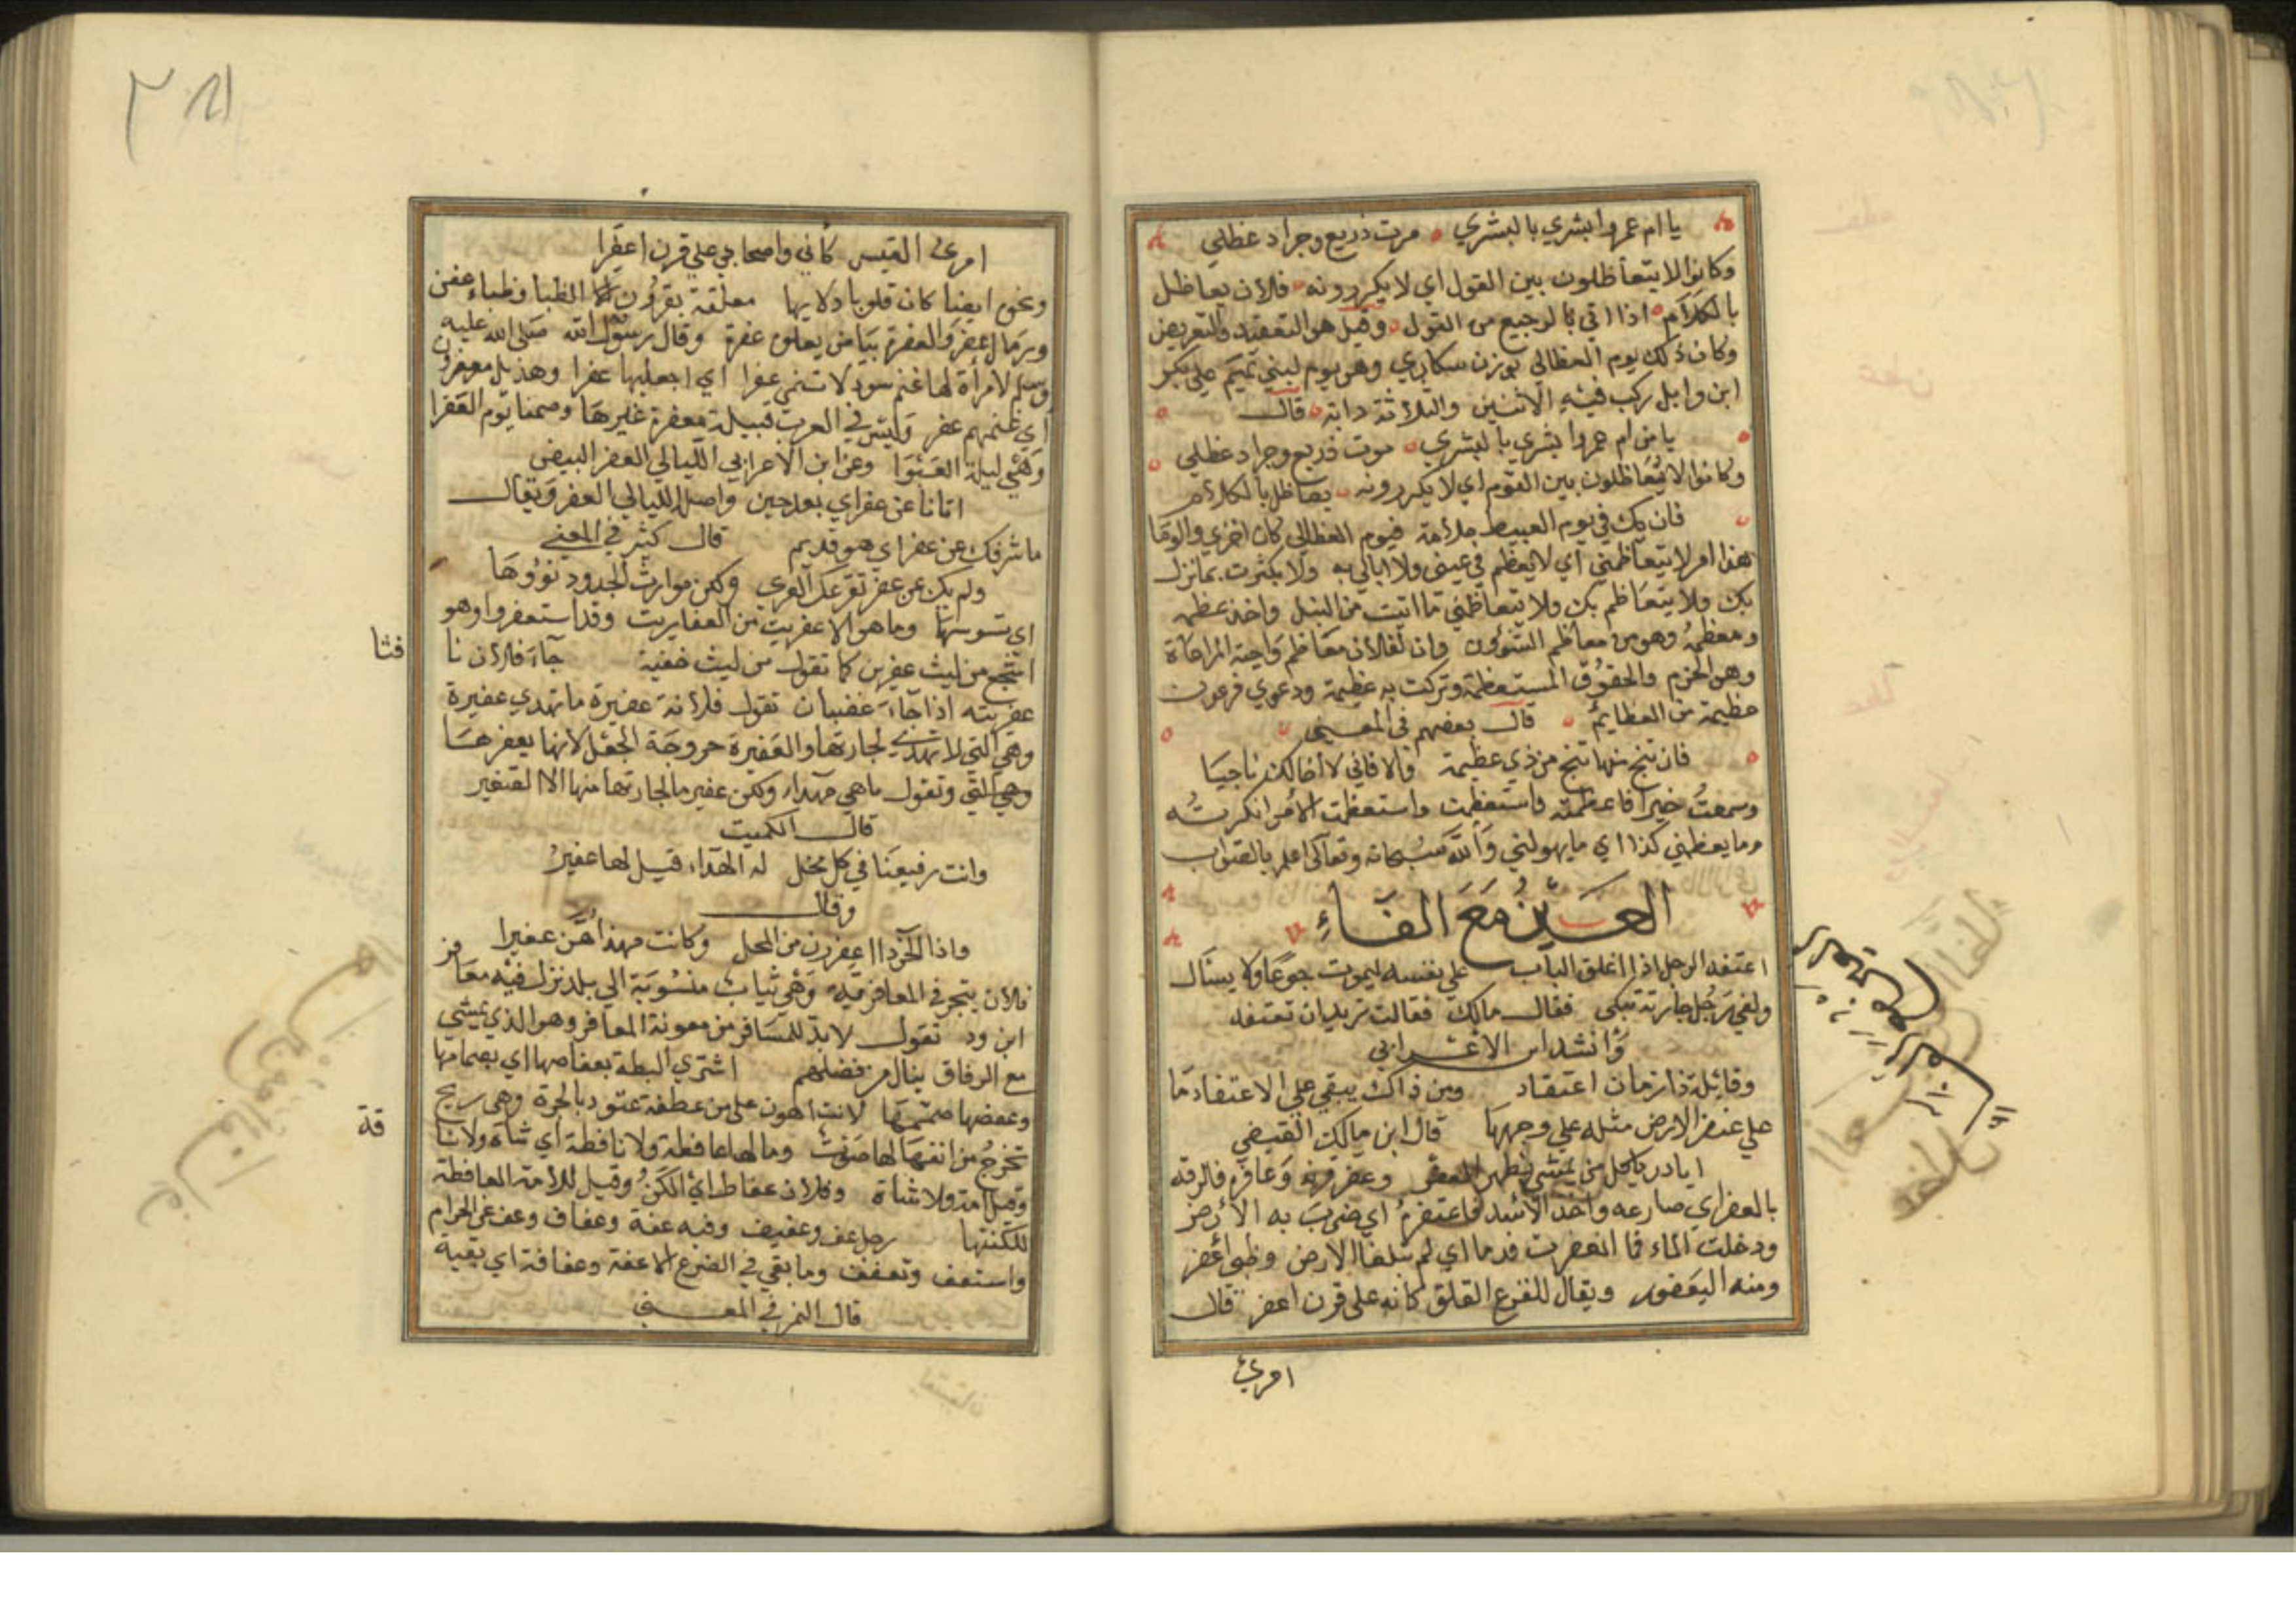 يا ام عمرو ابشري بالبشري مرت ذريع وجراد عظلي
وكانوا لا يتعاظلون بين القول اي لا يكررونه فلان يعاظل
بالكلام اذا اتي بالرجيع من القول وقيل هو التعقيد والتعريض
وكان ذلك يوم العظالي بوزن سكاري وهو يوم لبني تميم علي بكر
ابن وايل ركب فيه الاثنين والثلاثة دابة قال
يا من ام عمروا بشري بالبشري موت ذريع وجراد عظلي
وكانوا لا يتعاظلون بين القوم اي لا يكررونه يعاظل بالكلام
فان يك في يوم العبيط ملامة فيوم العظالي كان اخزي والوما
هذا امر لا يتعاظمني اي لا يعظم في عيني ولا ابالي به ولا يكترث بما نزل
بك ولا يتعاظم بك ولا يتعاظمني ما اتيت من النيل واخذ عظمه
ومعظمه وهو من معاظم الشوون وان لفلان معاظم واجبة المراعاة
وهي الحرم والحقوق المستعظمة وتركت به عظيمة ودعوي فرعون
عظيمة من العظايم قال بعضهم في المعني
فان تنج منها تنج من ذي عظيمة والا فاني لا اخالك ناجيا
وسمعت خبرا فاعظمته واستعظمت واستعظمت الامر انكرته
وما يعظمني كذا اي ما يهولني والله سبحانه وتعالي اعلم بالصواب
العين مع الفاء
اعتفد الرجل اذا اغلق الباب علي نفسه ليموت جوعا ولا يسال
ولقي رجل جارية تبكي فقال مالك فقالت نريد ان نعتفد
وانشد ابن الاعرابي
وقايلة ذا زمان اعتفاد ومن ذاك يبقي علي الاعتفاد ما
علي عفر الارض مثله علي وجهها قال ابن مالك القيضي
ايادر ياكل من يمشي بظهر العفر وعفر قرنه وعافره فالزقه
بالعفر اي صارعه واخذ الاسد فاعتفره اي ضرب به الارض
ودخلت الماء فما انعفرت قدما اي لم تبلغا الارض وظبي اعفر
ومنه اليعفور ويقال للفزع القلق كانه علي قرن اعفر قال
امرئ
امرئ القيس كأني واصحابي علي قرن اعفرا
ونحوه ايضا كان قلوب ادلايها معلقة بقرون الظبا وظباء عفر
ورمال عفر والعفرة بياض يعلوه عفرة وقال رسول الله صلي الله عليه
وسلم لامرأة لها غنم سود لا تنمي عفرا اي اجعليها عفرا وهذيل معفرون
اي غنمهم عفر وليس في العرب قبيلة معفرة غيرها وصمنا يوم العفرا
وهي ليلة العشوا وعن ابن الاعرابي الليالي العفر البيض
اتانا عن عفر اي بعد حين واصله الليالي العفر ويقال
ما شرفك عن عفر اي هو قديم قال كثير في المعني
ولم يك عن عفر تفرعك العري ولكن موارث الجدود تؤورها
اي تسوسها وما هو الا عفريت من العفاريت وقد استعفروا وهو
اشجع من ليث عفرين كما تقول من ليث خفية جاء فلان نا
فثا
عفريته اذا جاء غضبان تقول فلانة عفيرة ما تهدي عفيرة
وهي التي لا تهدي لجارتها والعفيرة دحروجة الجعل لانها يعفرها
وهي التي وتقول ما هي مهداء ولكن عفير ما لجارتها منها الا التعفير
قال الكميت
وانت ربيعنا في كل محل له الهداء قيل لها عفير
وقال
واذا الخرد اعفررن من المحل وكانت مهداهن عفيرا
فلان يتجر في المعافرية وهي ثياب منسوبة الي بلد نزل فيه معافر
ابن ود تقول لابد للمسافر من معونة المعافر وهو الذي يمشي
مع الرفاق ينال من فضلهم اشتري البطة بعفاصها اي بصمامها
وعفصها صممها لانت اهون علي من عطفة عتود بالحرة وهي ريح
تخرج من انفها لها صوت وما لها عافطة ولا نافطة اي شاة ولا نا
قة
وقيل امة ولا شاة وفلان عفاط اي الكن وقيل للامة العافطة
للكنتها رجل عف وعفيف وفيه عفة وعفاف وعف عن الحرام
واستعف وتعفف وما بقي في الضرع الا عفة وعفافة اي بقية
قال النمر في المعني